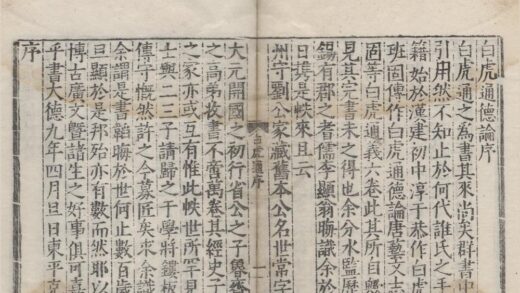 白虎通德論序
白虎通之為書其來尚矣群書中
引用然不知止於何代誰氏之手
籍始於漢建初中淳于恭作白虎
班固傳作白虎通德論唐藝文志
固等白虎通義六卷此其所自歟
見其完書未之得也余分水監歷
錫有郡之耆儒李顯翁晦識余於
日携是帙來且云
州守劉公家藏舊本公名世常字
白虎通序
一
大元開國之初行省公之子魯齋
之高弟收書不啻萬卷其經史子
之家亦或互有惟此帙世所罕見
士與二三子請歸之于學將鏤板
傳守慨然許之今募匠矣來余識
余謂是書韜晦於世何止數百歲
日顯於是邦殆亦有數而然耶以
博古廣文暨諸生之好事俱可嘉
乎書大德九年四月旦日東平克
序